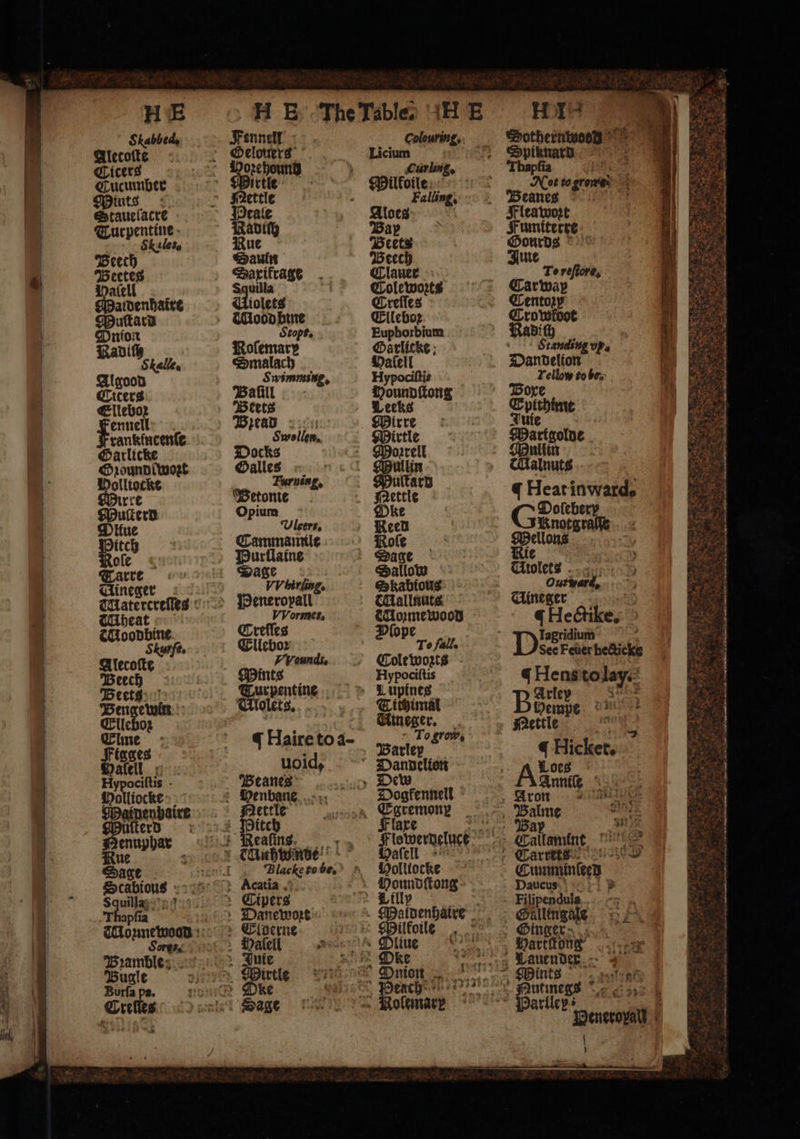 HE
Skabbed,
Alecoste
Cicers
Cucumber
Mints
Stauesacre
Turpentine
Skales,
Beech
Beetes
Hasell
Maidenhaire
Mustard
Onion
Radish
Skalle,
Algood
Cicers
Ellebor
Fennell
Frankincense
Garlicke
Groundswort
Holliocke
Mirre
Musterd
Oliue
Pitch
Rose
Tarre
Uineger
Watercresses
Wheat
Woodbine
Skurfe,
Alecoste
Beech
Beets
Bengewin
Ellebor
Elme
Figges
Hasell
Hypocistis
Holliocke
Maidenhaire
Musterd
Nenuphar
Rue
Sage
Scabious
Squilla
Thapsia
Wormewood
Sores,
Bramble
Bugle
Bursa pa.
Cresses
HE The Table. HE
Fennell
Gelouers
Horehound
Mirtle
Nettle
Peate
Radish
Rue
Sauin
Saxifrage
Squilla
Uiolets
Woodbine
Stopt,
Rosemary
Smalach
Swimming,
Basill
Beets
Bread
Swollen,
Docks
Galles
Turning,
Betonie
Opium
Ulcers,
Cammamile
Purslaine
Sage
VVhirling,
Peneroyall
VVormes,
Cresses
Ellebor
VVounds,
Mints
Turpentine
Uiolets,
¶ Haire to a-
uoid,
Beanes
Henbane
Nettle
Pitch
Reasins
Withwinde
Blacke to be,
Acatia
Cipers
Danewort
Elderne
Hasell
Iuie
Mirtle
Oke
Sage
Colouring,
Licium
Curling,
Milfoile
Falling,
Aloes
Bay
Beets
Beech
Clauer
Coleworts
Cresses
Ellebor
Euphorbium
Garlicke
Hasell
Hypocistis
Houndstong
Leeks
Mirre
Mirtle
Morrell
Mullin
Mustard
Nettle
Oke
Reed
Rose
Sage
Sallow
Skabious
Wallnuts
Wormewood
Ysope
To fall,
Coleworts
Hypocistis
Lupines
Tithimal
Uineger.
To grow,
Barley
Dandelion
Dew
Dogfennell
Egremony
Flaxe
Flowerdeluce
Hasell
Holliocke
Houndstong
Lilly
Maidenhaire
Milfoile
Oliue
Oke
Onion
Peach
Rosemary
Sothernwood
Spiknard
Thapsia
Not to growe
Beanes
Fleawort
Fumiterre
Gourds
Iuie
To restore,
Carway
Centory
Crowfoot
Radish
Standing vp,
Dandelion
Yellow to be,
Boxe
Epithime
Iuie
Marigolde
Mullin
Walnuts
¶ Heat inward,
Golebery
Knotgrasse
Mellons
Rie
Uiolets
Outward,
Uineger
¶ Hectike,
Iagridium
See Feuer hecticke
¶ Hens to lay.
Barley
Hempe
Nettle
¶ Hicket.
Aloes
Annise
Aron
Balme
Bay
Callamint
Carrets
Cumminseed
Daucus
Filipendula
Gallingale
Ginger
Hartstong
Lauender
Mints
Nutmegs
Parsley
Peneroyall